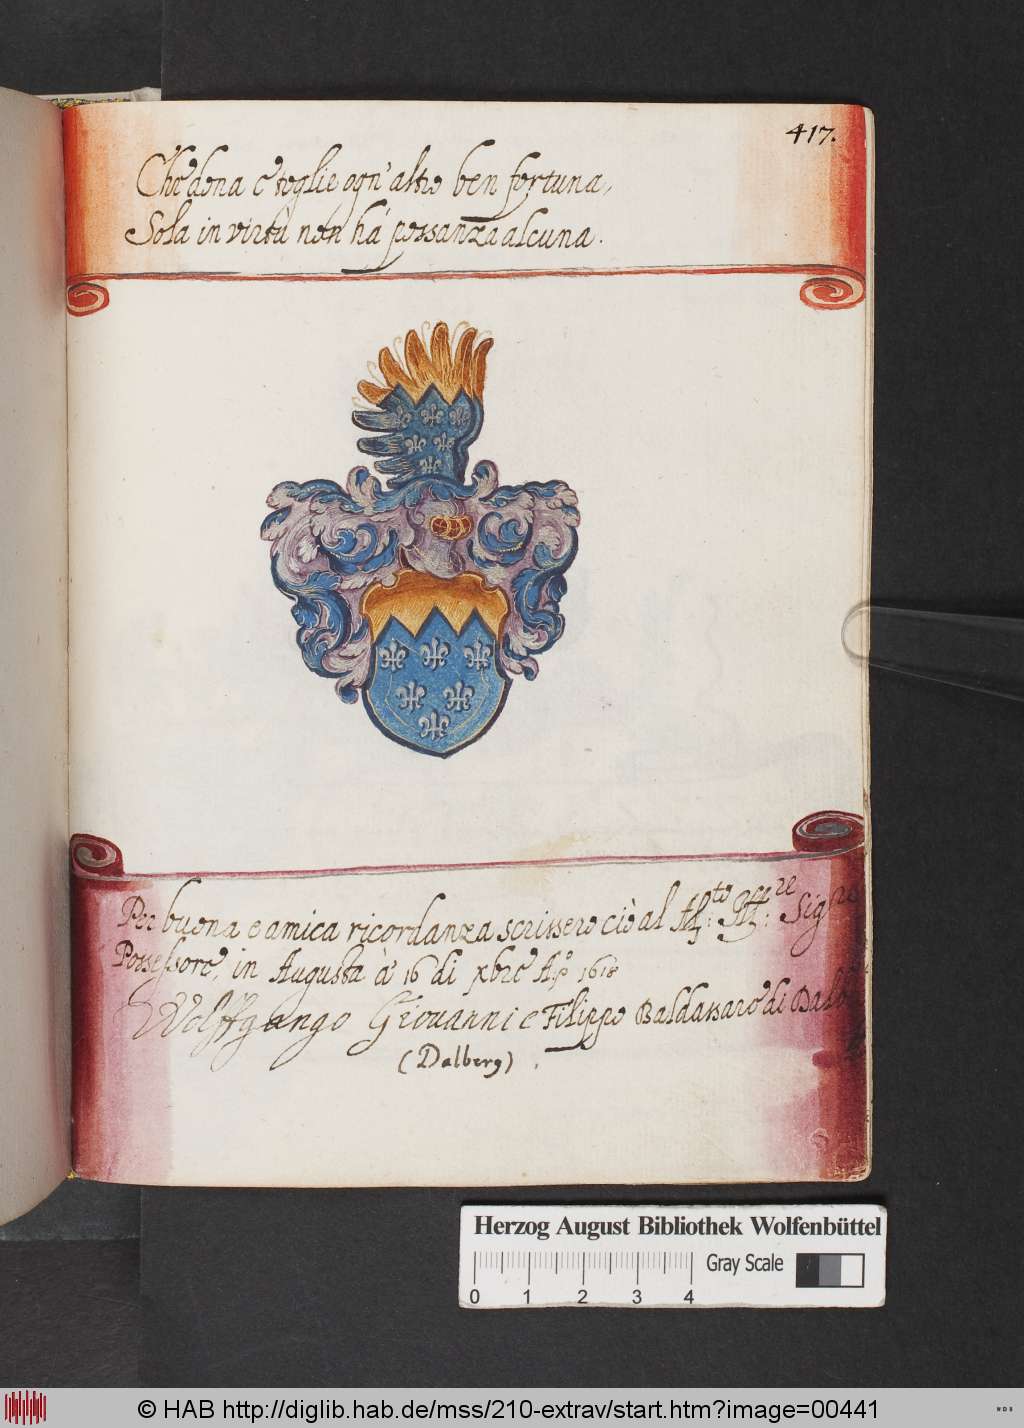 417.
Che dona e toglie ogn' altro ben fortuna,
Sola in virtù non há possanza alcuna.
Per buona e amica ricordanza scrissero ciò al Sig.re
Possessore, in Augusta à 16 di xbre Aº 1618
Wolffgango Giovanni e Filippo Baldassare di Dalb
(Dalberg).
Herzog August Bibliothek Wolfenbüttel
Gray Scale
0 1 2 3 4
© HAB http://diglib.hab.de/mss/210-extrav/start.htm?image=00441